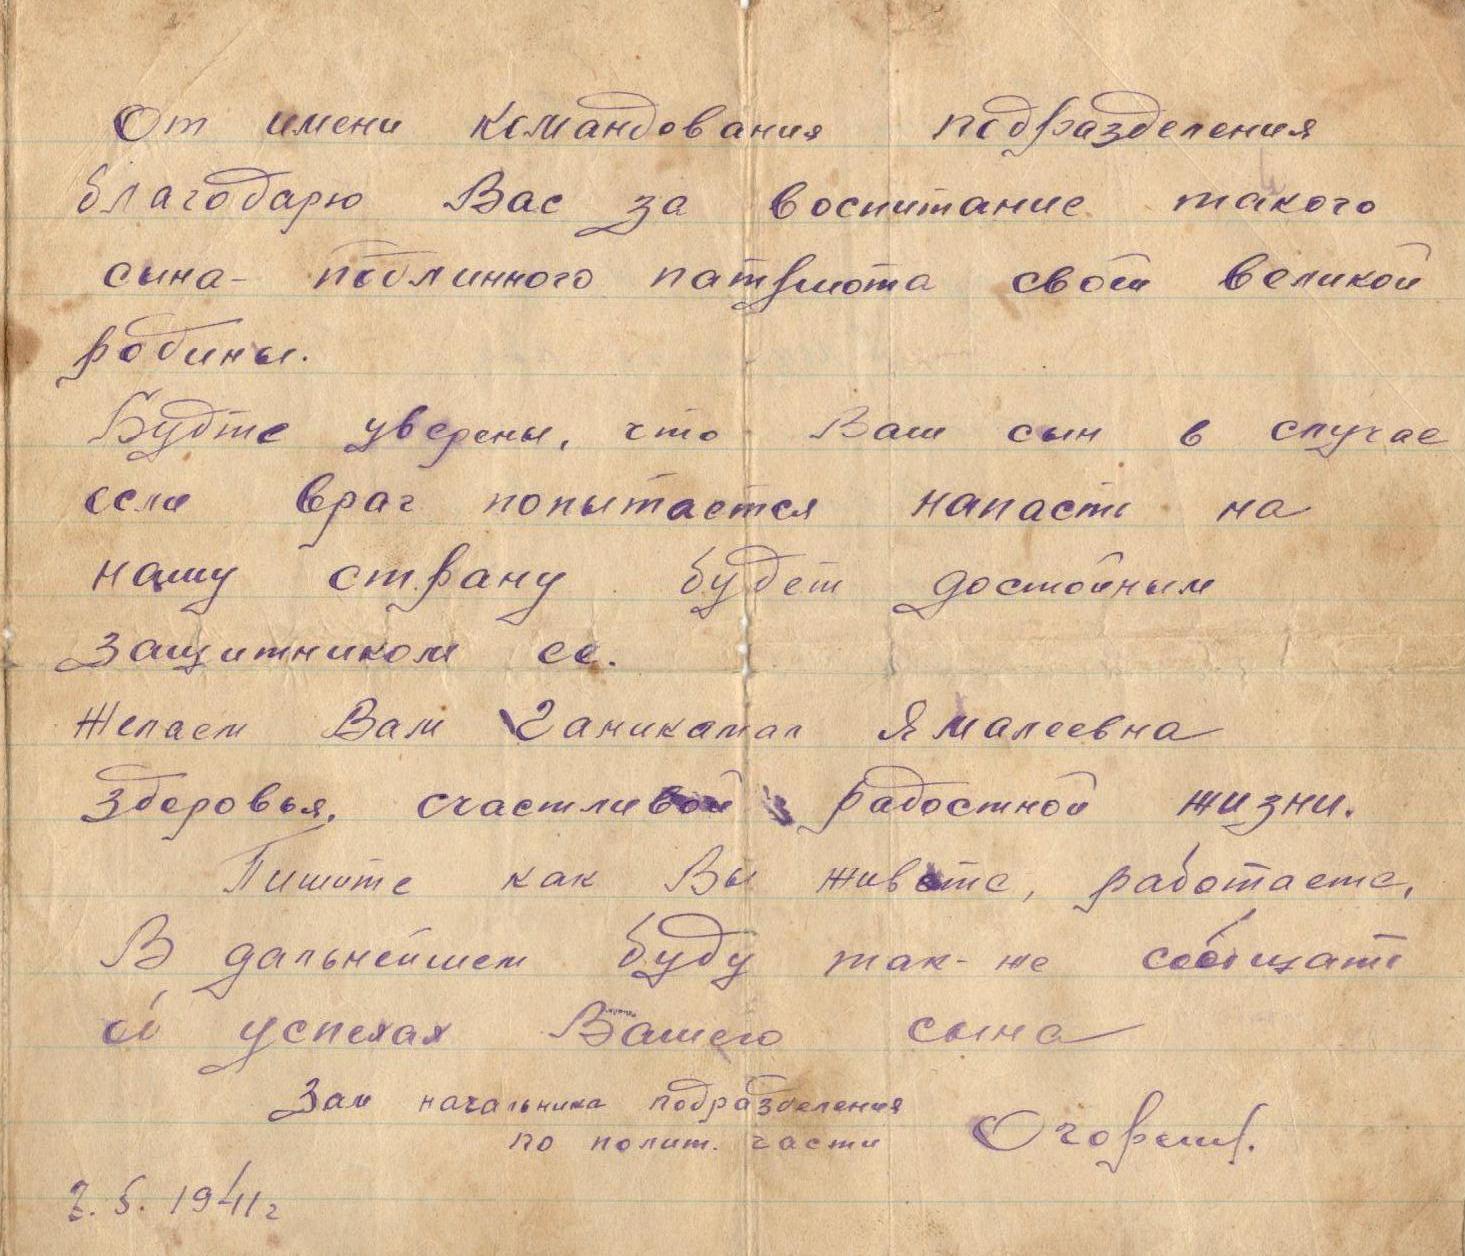 От имени командования подразделения
благодарю Вас за воспитание такого
сына- подлинного патриота своей великой
родины.
Будте уверены, что Ваш сын в случае
если враг попытается напасть на
нашу страну будет достойным
защитником ее.
Желаем Вам Ямалеевна
здоровья, счастливой радостной жизни.
Пишите как Вы живете, работаете,
В дальнейшем буду так-же сообщать
об успехах Вашего сына
Зам начальника подразделения
по полит. части
5. 1941 г